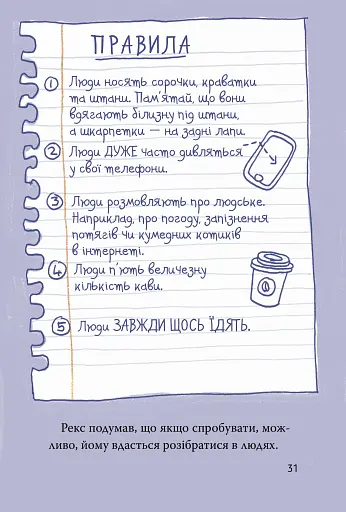 ПРАВИЛА
1 Люди носять сорочки, краватки
та штани. Пам'ятай, що вони
вдягають білизну під штани,
а шкарпетки — на задні лапи.
2 Люди ДУЖЕ часто дивляться
у свої телефони.
3 Люди розмовляють про людське.
Наприклад, про погоду, запізнення
потягів чи кумедних котиків
в інтернеті.
4 Люди п'ють величезну
кількість кави.
5 Люди ЗАВЖДИ ЩОСЬ ЇДЯТЬ.
Рекс подумав, що якщо спробувати, мож-
ливо, йому вдасться розібратися в людях.
31